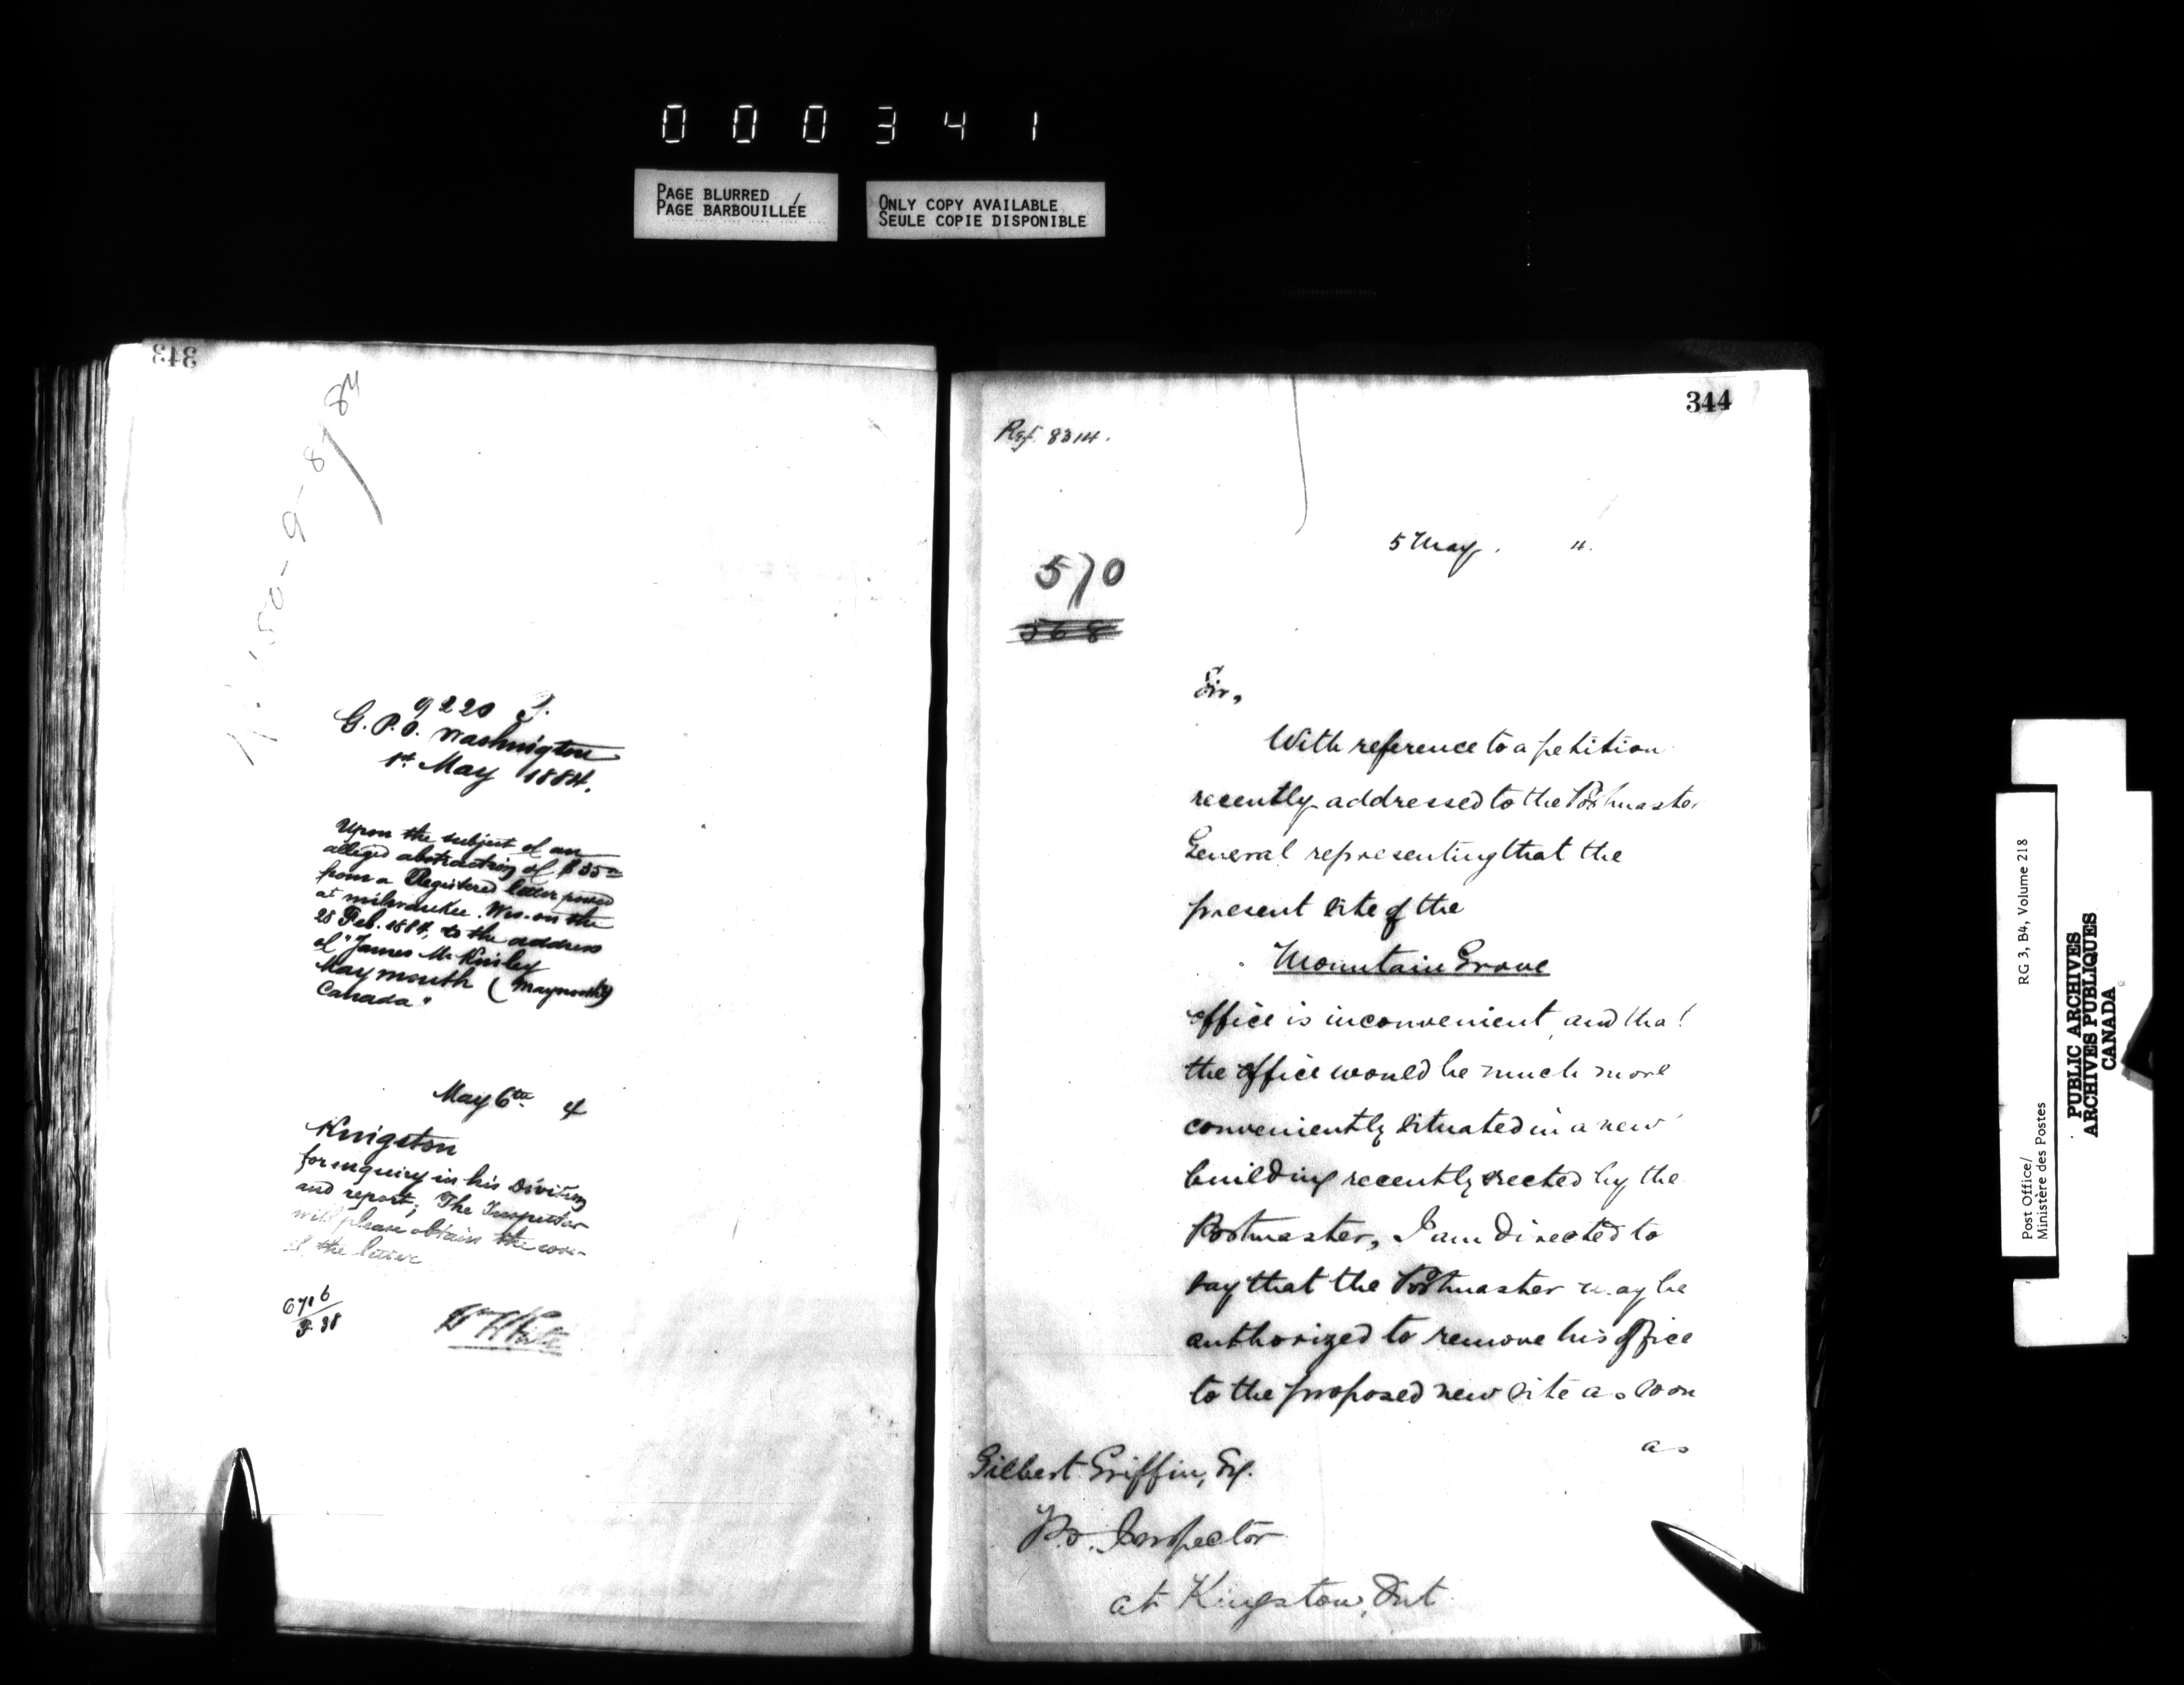 000341
PAGE BLURRED /
PAGE BARBOUILLÉE
ONLY COPY AVAILABLE
SEULE COPIE DISPONIBLE
343
50-9-8
84
9220 J.
G. P. O. Washington
1st May 1884.
Upon the subject of an
alleged abstraction of $35
from a Registered letter posted
at Milwaukee. Wis. on the
28 Feb. 1884, to the address
of "James McKinley
Maymouth (Maynooth?)
Canada"
May 6th 4
Kingston
for inquiry in his Division
and report; The Inspector
will please obtain the cover
of the letter
6716
F. 38
Wm White
344
Ref. 8314.
5 May. 4.
570
568
Sir,
With reference to a petition
recently addressed to the Postmaster
General representing that the
present site of the
Mountain Grove
office is inconvenient, and that
the office would be much more
conveniently situated in a new
building recently erected by the
Postmaster, I am directed to
say that the Postmaster may be
authorized to remove his office
to the proposed new site as soon
as
Gilbert Griffin, Esq.
P.O. Inspector
at Kingston, Ont.
Post Office/
Ministère des Postes
RG 3, B4, Volume 218
PUBLIC ARCHIVES
ARCHIVES PUBLIQUES
CANADA